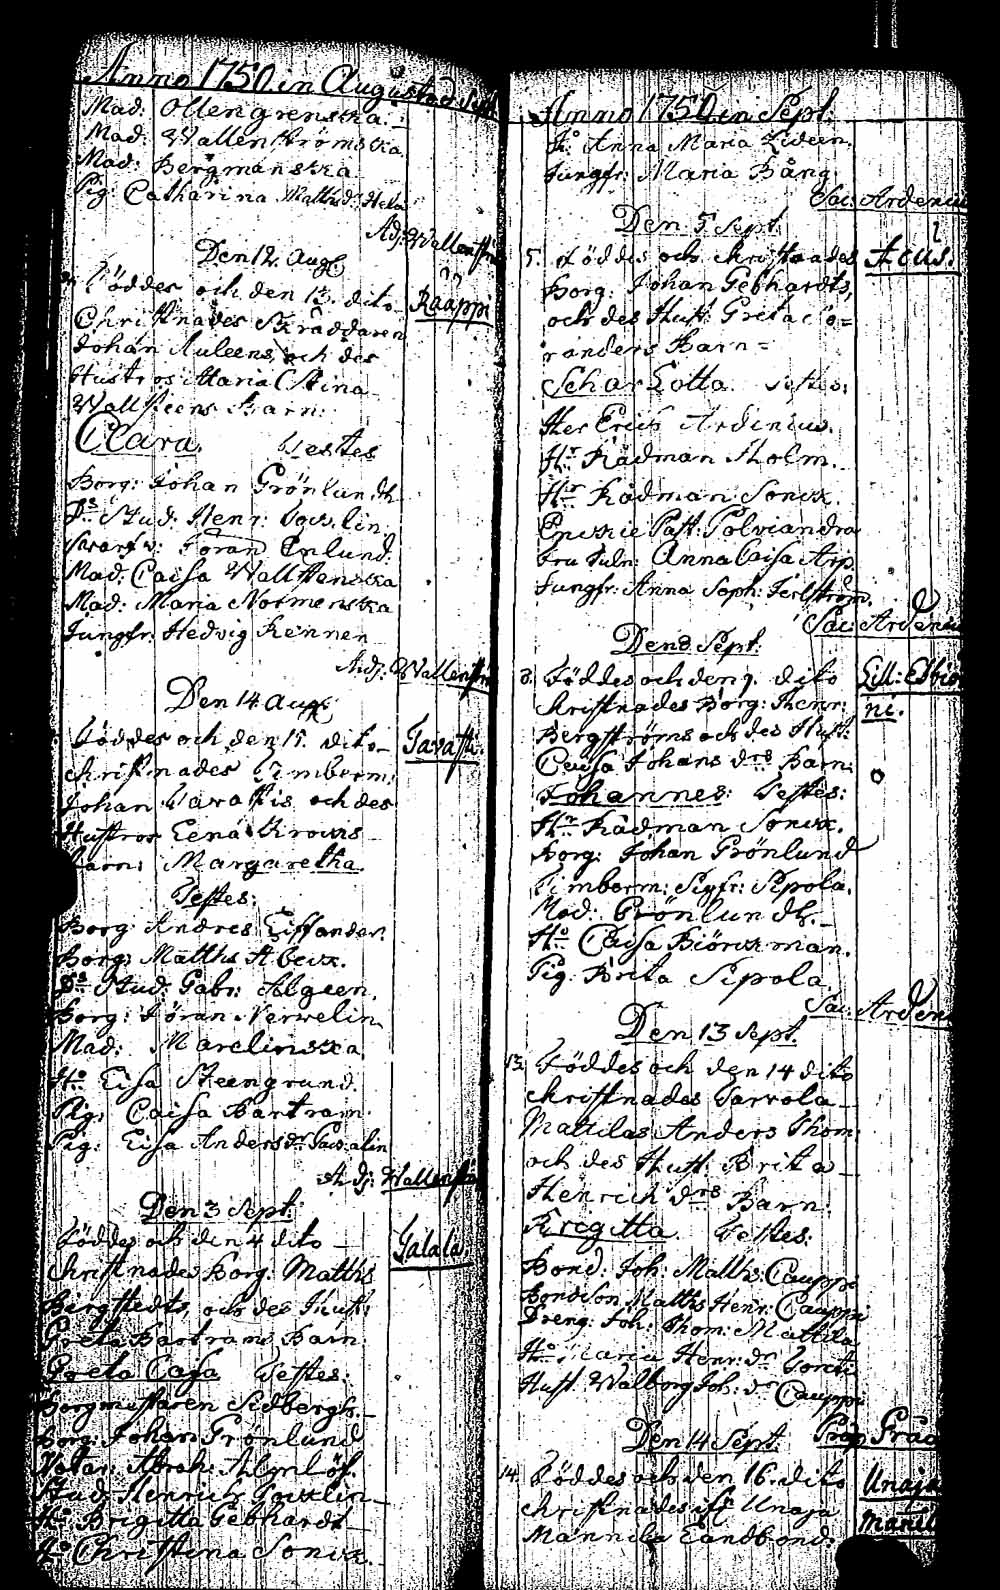 Anno 1750 in Augusto och Sept.
Mad: Ollengrenska.
Mad: Wallenströmska
Mad: Bergmanska
Pig: Catharina Matths dr Hela
Adj: Wallenströ
Den 12. Aug.
Föddes och den 13. dito Raappi
Christnades Skräddaren
Johan Auleens och des
Hustros Maria Stina
Wallsteens Barn:
Clara. Testes
Borg: Johan Grönlundh
Ds Stud: Henr: Pacvlin
Swarfw: Jöran Enlund.
Mad: Caisa Wallstenska
Mad: Maria Normenska
Jungfr: Hedvig Rennen
Adj: Wallenströ
Den 14 Aug.
Föddes och den 15. dito Tavasti.
christnades Timberm:
Johan Tavastis och des
Hustros Lena Krouks
barn: Margaretha
Testes:
Borg: Andres Liffander.
Borg: Matths Abeck.
Ds Stud: Gabr: Algeen.
Borg: Jöran Nerwelin
Mad: Marelinska
Ho Lisa Steengrund.
Pig: Caisa Bartram
Pig: Lisa Anders dr Pavalin
Adj: Wallenströ
Den 3 Sept.
Föddes och den 4 dito Galala.
christnades Borg: Matths
Bergstedts, och des Hust:
Greta Bartrams Barn
Greta Caisa Testes:
Borgmestaren Sidbergh.
Borg: Johan Grönlund
Notar: Abrah: Ahlnlöf.
Stud: Henrich Pacvlin
Ho Brigitta Gebhardt
Ho Christina Sonck.
Anno 1750 in Sept.
Jfr. Anna Maria Lideen.
Jungfr: Maria Bång
Sac: Ardenius
Den 5 Sept.
5. Föddes och christnades Acus.
Borg: Johan Gebhardts,
och des Hust: Greta
randers Barn
Scharlotta. Testes:
Her Erich Ardenius.
Hr Rådman Tholm.
Hr Rådman Sonck.
Enckie Past: Polviandra
Fru Juln: Anna Caisa Arp.
Jungfr: Anna Soph: Ferlström.
Sac: Ardenius
Den 8 Sept.
8. Föddes och den 9. dito Lill: Ebbiö
christnades Borg: Henr: ni.
Bergströms och des Hust:
Caisa Johans drs Barn:
Johannes: Testes:
Hr Rådman Sonck.
Borg: Johan Grönlund
Timberm: Sigfr: Sipola.
Mad: Grönlundh.
Ho Caisa Biörckman.
Pig: Brita Sipola.
Sac: Arden
Den 13 Sept.
13. Föddes och den 14 dito
christnades Sarvola
Mattilas Anders Thom:
och des Hust: Brita
Henrich drs Barn:
Brigitta Testes:
Bond: Joh: Matths: Cauppi
Bondson Matths Henr: Cauppi
Dreng: Joh: Thom: Mattila
Ho Maria Henr: dr
Hust: Walborg Joh: dr Cauppi
Prop Prao
Den 14 Sept.
14. Föddes och den 16. dito Unaja
christnades ifr Unaja Manil
Mannila Landbond: